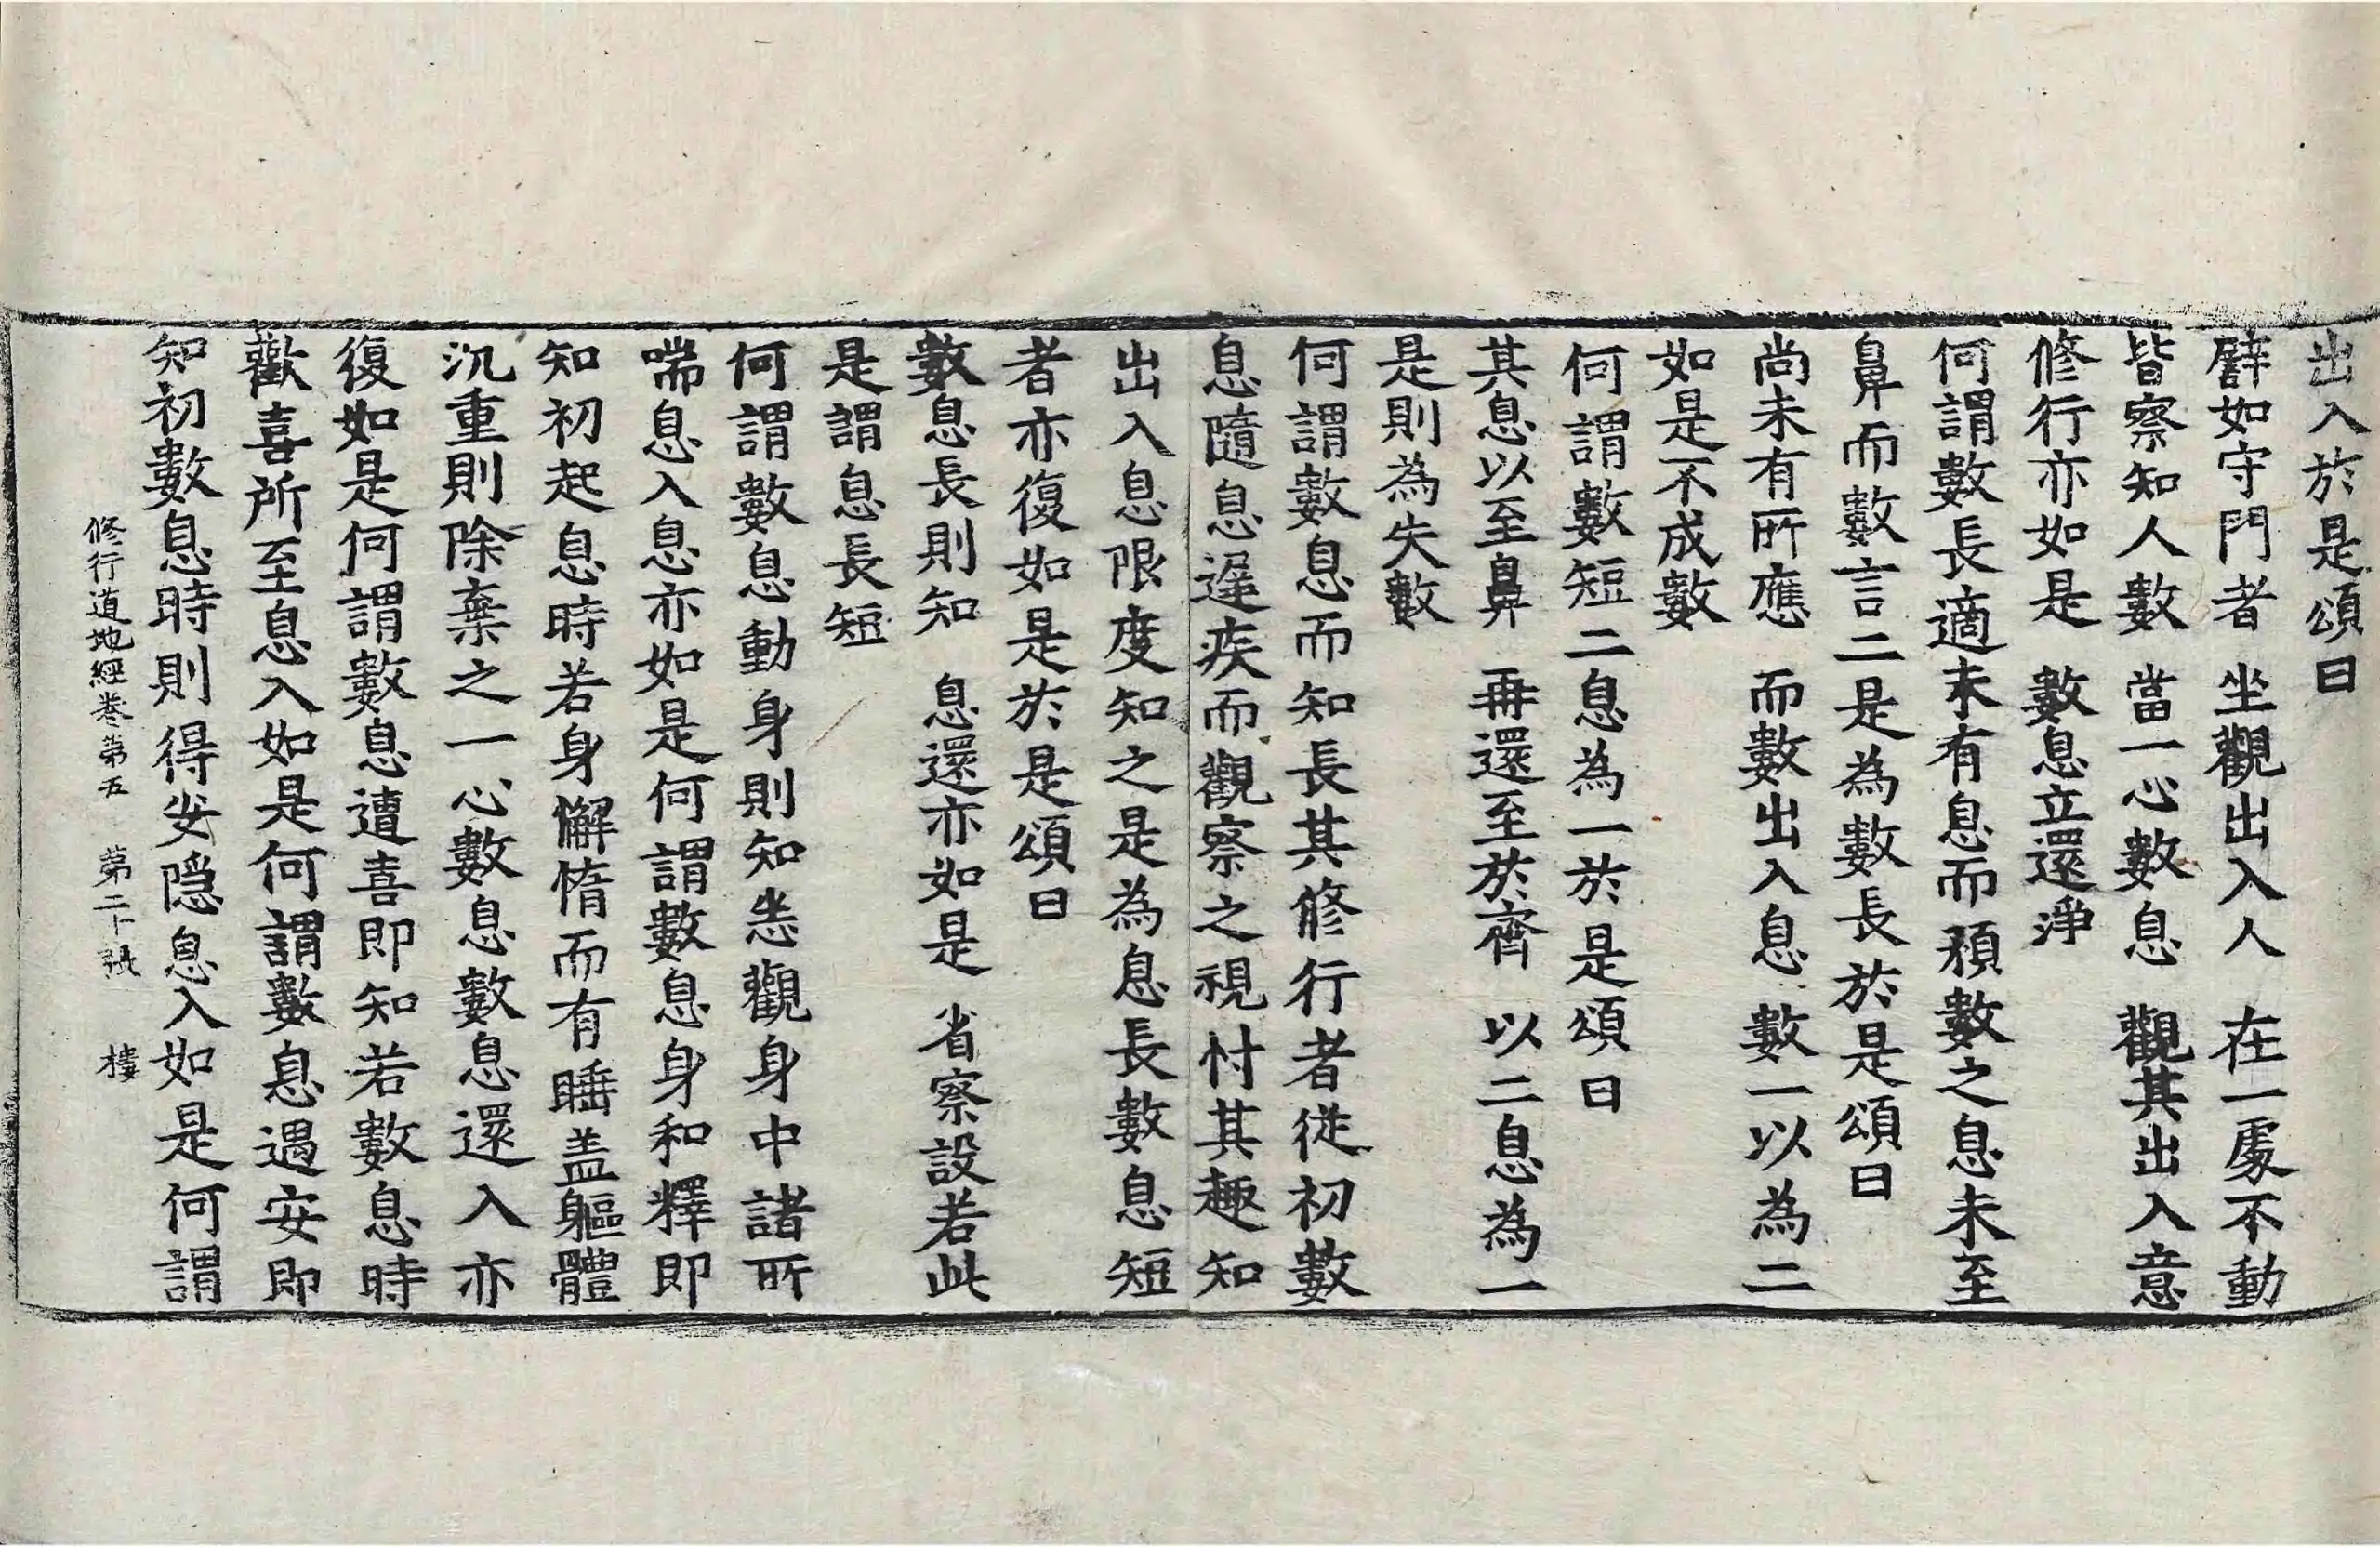 出入於是頌曰
譬如守門者 坐觀出入人 在一處不動
皆察知人數 當一心數息 觀其出入意
修行亦如是 數息立還淨
何謂數長適未有息而預數之息未至
鼻而數言二是為數長於是頌曰
尚未有所應 而數出入息 數一以為二
如是不成數
何謂數短二息為一於是頌曰
其息以至鼻 再還至於齊 以二息為一
是則為失數
何謂數息而知長其修行者從初數
息隨息遲疾而觀察之視忖其趣知
出入息限度知之是為息長數息短
者亦復如是於是頌曰
數息長則知 息還亦如是 省察設若此
是謂息長短
何謂數息動身則知悉觀身中諸所
喘息入息亦如是何謂數息身和釋即
知初起息時若身懈惰而有睡盖軀體
沉重則除棄之一心數息數息還入亦
復如是何謂數息遭喜即知若數息時
歡喜所至息入如是何謂數息遇安即
知初數息時則得安隱息入如是何謂
修行道地經卷第五 第二十張 樓